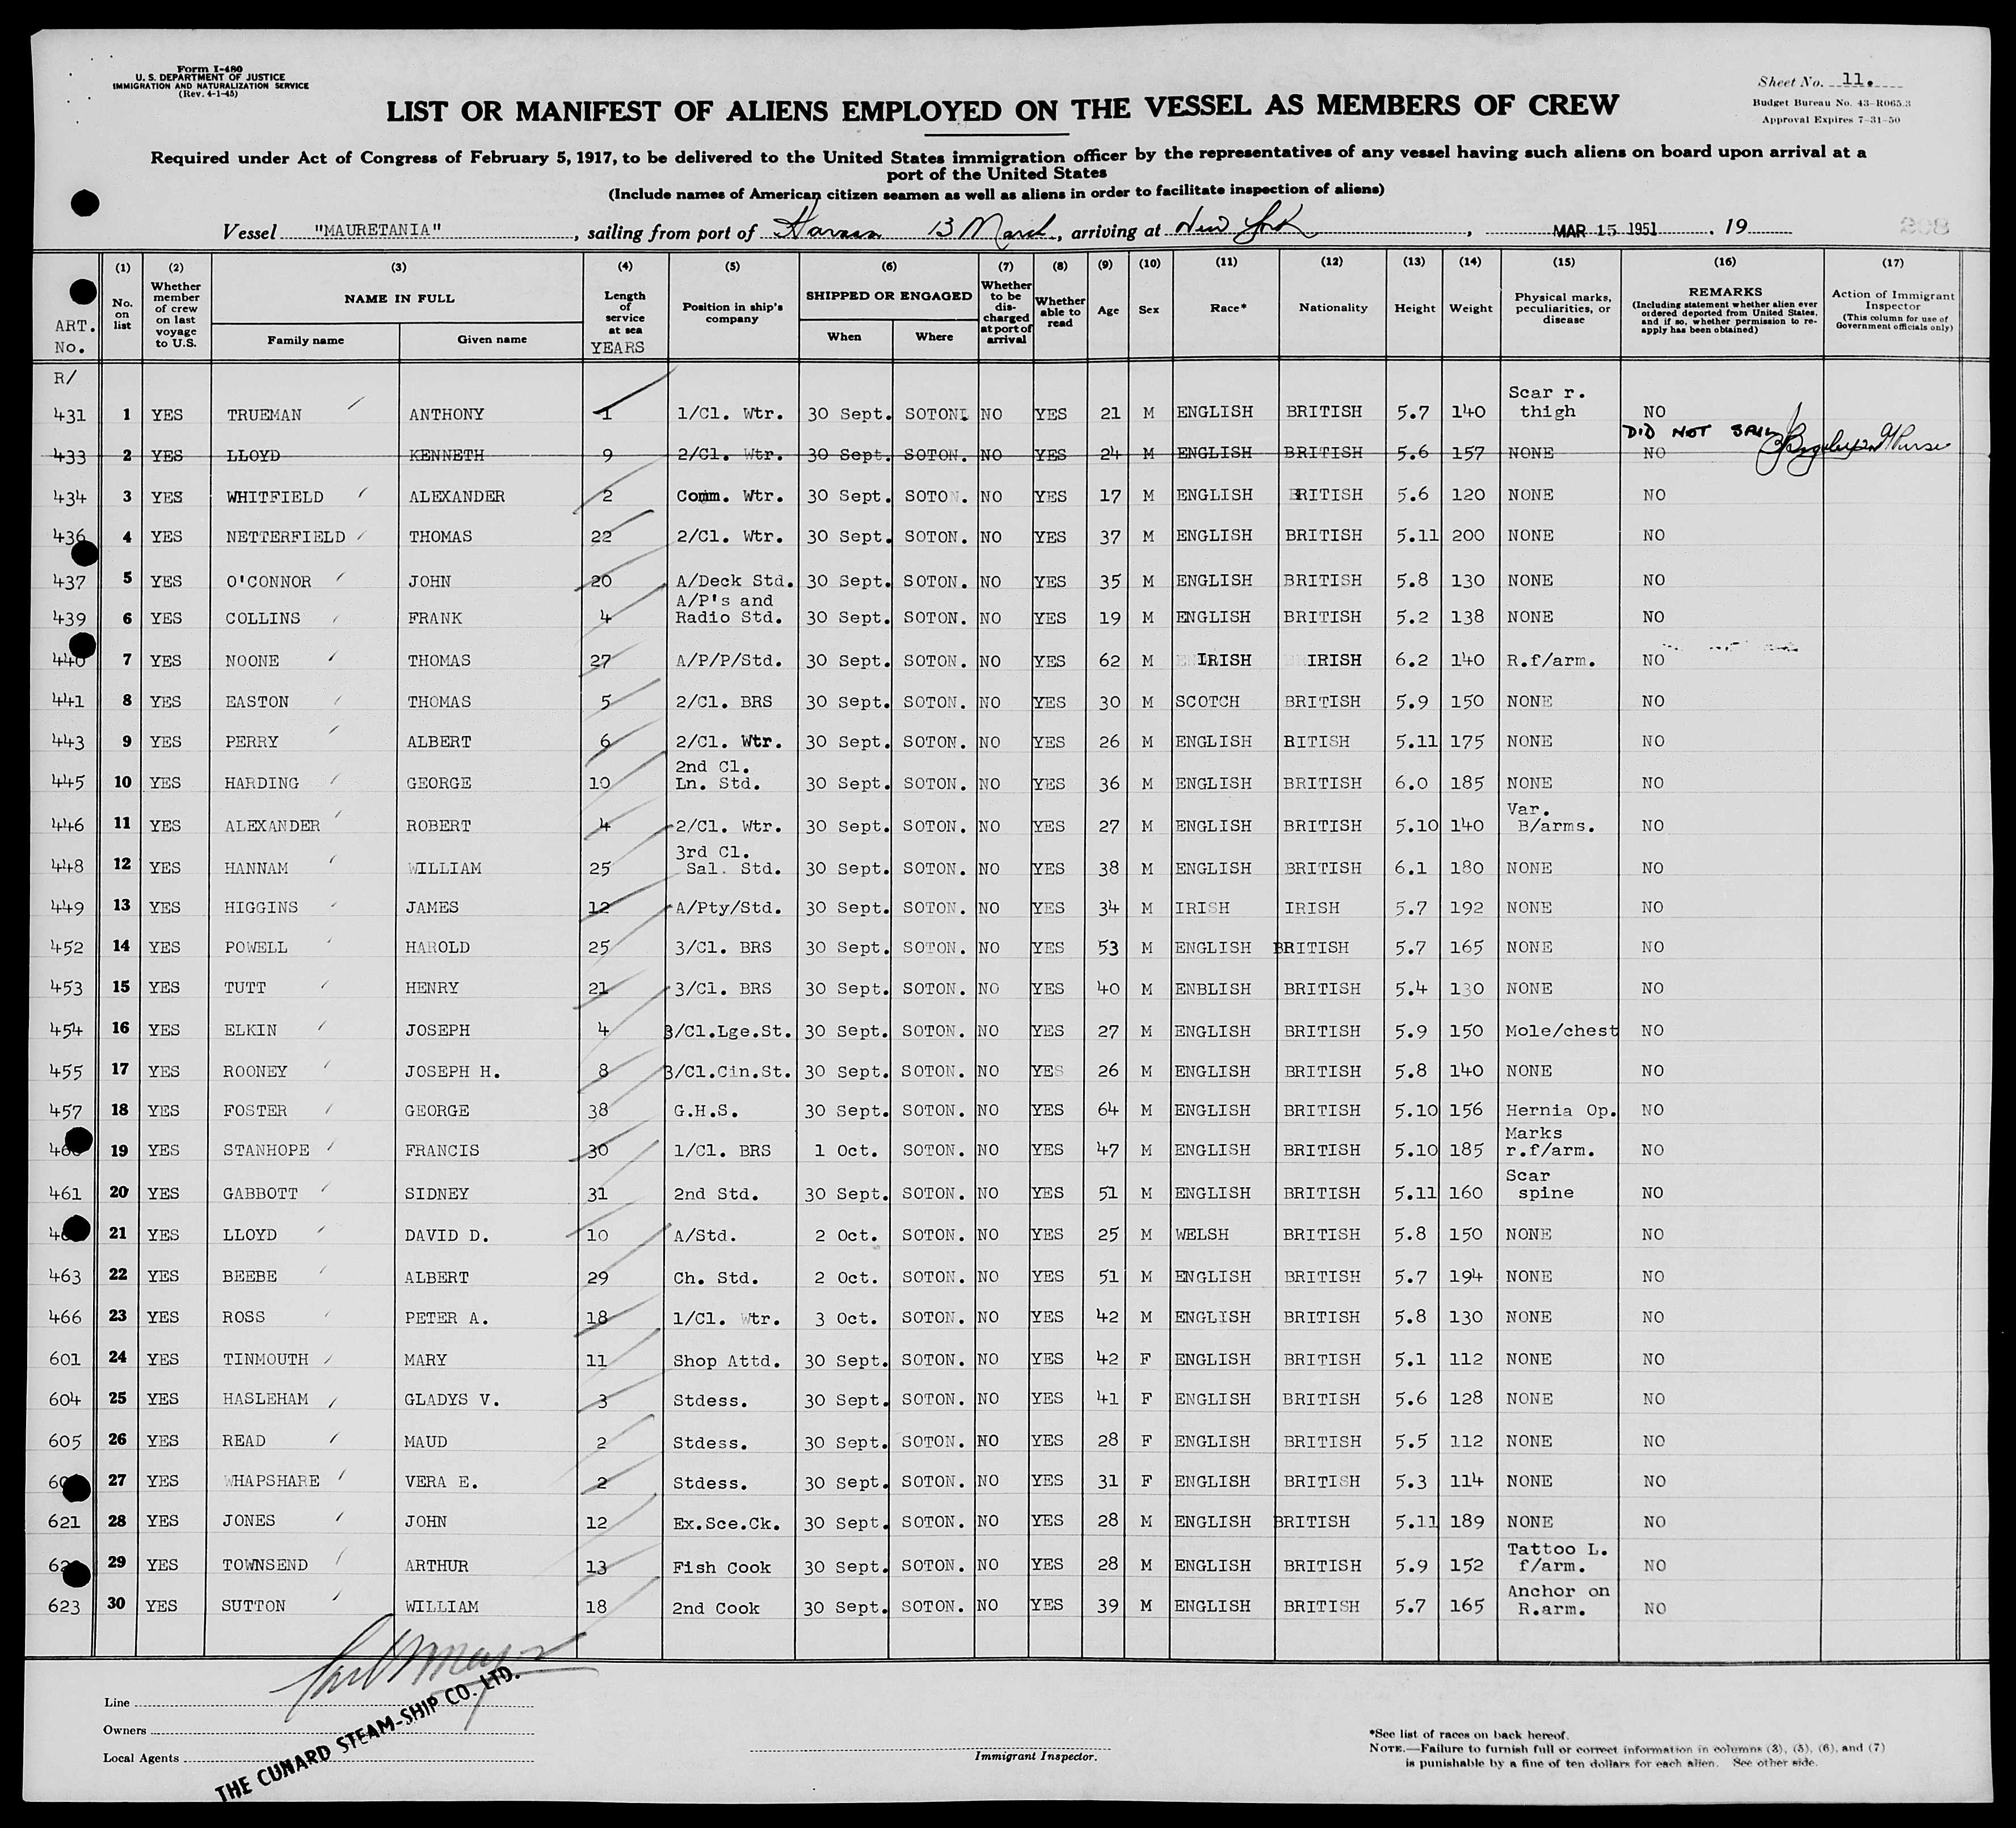 Form I-480
U. S. DEPARTMENT OF JUSTICE
IMMIGRATION AND NATURALIZATION SERVICE
(Rev. 4-1-45)
Sheet No. 11.
Budget Bureau No. 43-R065.3
Approval Expires 7-31-50
LIST OR MANIFEST OF ALIENS EMPLOYED ON THE VESSEL AS MEMBERS OF CREW
Required under Act of Congress of February 5, 1917, to be delivered to the United States immigration officer by the representatives of any vessel having such aliens on board upon arrival at a
port of the United States
(Include names of American citizen seamen as well as aliens in order to facilitate inspection of aliens)
Vessel "MAURETANIA", sailing from port of Havana 13 March, arriving at New York, MAR 15 1951. 19
ART. No. (1) No. on list (2) Whether member of crew on last voyage to U.S. (3) NAME IN FULL Family name Given name (4) Length of service at sea YEARS (5) Position in ship's company (6) SHIPPED OR ENGAGED When Where (7) Whether to be discharged at port of arrival (8) Whether able to read (9) Age (10) Sex (11) Race* (12) Nationality (13) Height (14) Weight (15) Physical marks, peculiarities, or disease (16) REMARKS (Including statement whether alien ever ordered deported from United States, and if so, whether permission to reapply has been obtained) (17) Action of Immigrant Inspector (This column for use of Government officials only)
R/
431 1 YES TRUEMAN ANTHONY 1 1/Cl. Wtr. 30 Sept. SOTON NO YES 21 M ENGLISH BRITISH 5.7 140 Scar r. thigh NO
DID NOT SAIL
433 2 YES LLOYD KENNETH 9 2/Cl. Wtr. 30 Sept. SOTON. NO YES 24 M ENGLISH BRITISH 5.6 157 NONE NO
434 3 YES WHITFIELD ALEXANDER 2 Comm. Wtr. 30 Sept. SOTON. NO YES 17 M ENGLISH BRITISH 5.6 120 NONE NO
436 4 YES NETTERFIELD THOMAS 22 2/Cl. Wtr. 30 Sept. SOTON. NO YES 37 M ENGLISH BRITISH 5.11 200 NONE NO
437 5 YES O'CONNOR JOHN 20 A/Deck Std. 30 Sept. SOTON. NO YES 35 M ENGLISH BRITISH 5.8 130 NONE NO
439 6 YES COLLINS FRANK 4 A/P's and Radio Std. 30 Sept. SOTON. NO YES 19 M ENGLISH BRITISH 5.2 138 NONE NO
440 7 YES NOONE THOMAS 27 A/P/P/Std. 30 Sept. SOTON. NO YES 62 M IRISH IRISH 6.2 140 R.f/arm. NO
441 8 YES EASTON THOMAS 5 2/Cl. BRS 30 Sept. SOTON. NO YES 30 M SCOTCH BRITISH 5.9 150 NONE NO
443 9 YES PERRY ALBERT 6 2/Cl. Wtr. 30 Sept. SOTON. NO YES 26 M ENGLISH RITISH 5.11 175 NONE NO
445 10 YES HARDING GEORGE 10 2nd Cl. Ln. Std. 30 Sept. SOTON. NO YES 36 M ENGLISH BRITISH 6.0 185 NONE NO
446 11 YES ALEXANDER ROBERT 4 2/Cl. Wtr. 30 Sept. SOTON. NO YES 27 M ENGLISH BRITISH 5.10 140 Var. B/arms. NO
448 12 YES HANNAM WILLIAM 25 3rd Cl. Sal. Std. 30 Sept. SOTON. NO YES 38 M ENGLISH BRITISH 6.1 180 NONE NO
449 13 YES HIGGINS JAMES 12 A/Pty/Std. 30 Sept. SOTON. NO YES 34 M IRISH IRISH 5.7 192 NONE NO
452 14 YES POWELL HAROLD 25 3/Cl. BRS 30 Sept. SOTON. NO YES 53 M ENGLISH BRITISH 5.7 165 NONE NO
453 15 YES TUTT HENRY 21 3/Cl. BRS 30 Sept. SOTON. NO YES 40 M ENBLISH BRITISH 5.4 130 NONE NO
454 16 YES ELKIN JOSEPH 4 3/Cl.Lge.St. 30 Sept. SOTON. NO YES 27 M ENGLISH BRITISH 5.9 150 Mole/chest NO
455 17 YES ROONEY JOSEPH H. 8 3/Cl.Cin.St. 30 Sept. SOTON. NO YES 26 M ENGLISH BRITISH 5.8 140 NONE NO
457 18 YES FOSTER GEORGE 38 G.H.S. 30 Sept. SOTON. NO YES 64 M ENGLISH BRITISH 5.10 156 Hernia Op. NO
19 YES STANHOPE FRANCIS 30 1/Cl. BRS 1 Oct. SOTON. NO YES 47 M ENGLISH BRITISH 5.10 185 Marks r.f/arm. NO
461 20 YES GABBOTT SIDNEY 31 2nd Std. 30 Sept. SOTON. NO YES 51 M ENGLISH BRITISH 5.11 160 Scar spine NO
21 YES LLOYD DAVID D. 10 A/Std. 2 Oct. SOTON. NO YES 25 M WELSH BRITISH 5.8 150 NONE NO
463 22 YES BEEBE ALBERT 29 Ch. Std. 2 Oct. SOTON. NO YES 51 M ENGLISH BRITISH 5.7 194 NONE NO
466 23 YES ROSS PETER A. 18 1/Cl. Wtr. 3 Oct. SOTON. NO YES 42 M ENGLISH BRITISH 5.8 130 NONE NO
601 24 YES TINMOUTH MARY 11 Shop Attd. 30 Sept. SOTON. NO YES 42 F ENGLISH BRITISH 5.1 112 NONE NO
604 25 YES HASLEHAM GLADYS V. 3 Stdess. 30 Sept. SOTON. NO YES 41 F ENGLISH BRITISH 5.6 128 NONE NO
605 26 YES READ MAUD 2 Stdess. 30 Sept. SOTON. NO YES 28 F ENGLISH BRITISH 5.5 112 NONE NO
27 YES WHAPSHARE VERA E. 2 Stdess. 30 Sept. SOTON. NO YES 31 F ENGLISH BRITISH 5.3 114 NONE NO
621 28 YES JONES JOHN 12 Ex.Sce.Ck. 30 Sept. SOTON. NO YES 28 M ENGLISH BRITISH 5.11 189 NONE NO
29 YES TOWNSEND ARTHUR 13 Fish Cook 30 Sept. SOTON. NO YES 28 M ENGLISH BRITISH 5.9 152 Tattoo L. f/arm. NO
623 30 YES SUTTON WILLIAM 18 2nd Cook 30 Sept. SOTON. NO YES 39 M ENGLISH BRITISH 5.7 165 Anchor on R.arm. NO
Line
Owners
Local Agents
THE CUNARD STEAM-SHIP CO. LTD.
Immigrant Inspector.
*See list of races on back hereof.
NOTE.—Failure to furnish full or correct information in columns (3), (5), (6), and (7)
is punishable by a fine of ten dollars for each alien. See other side.